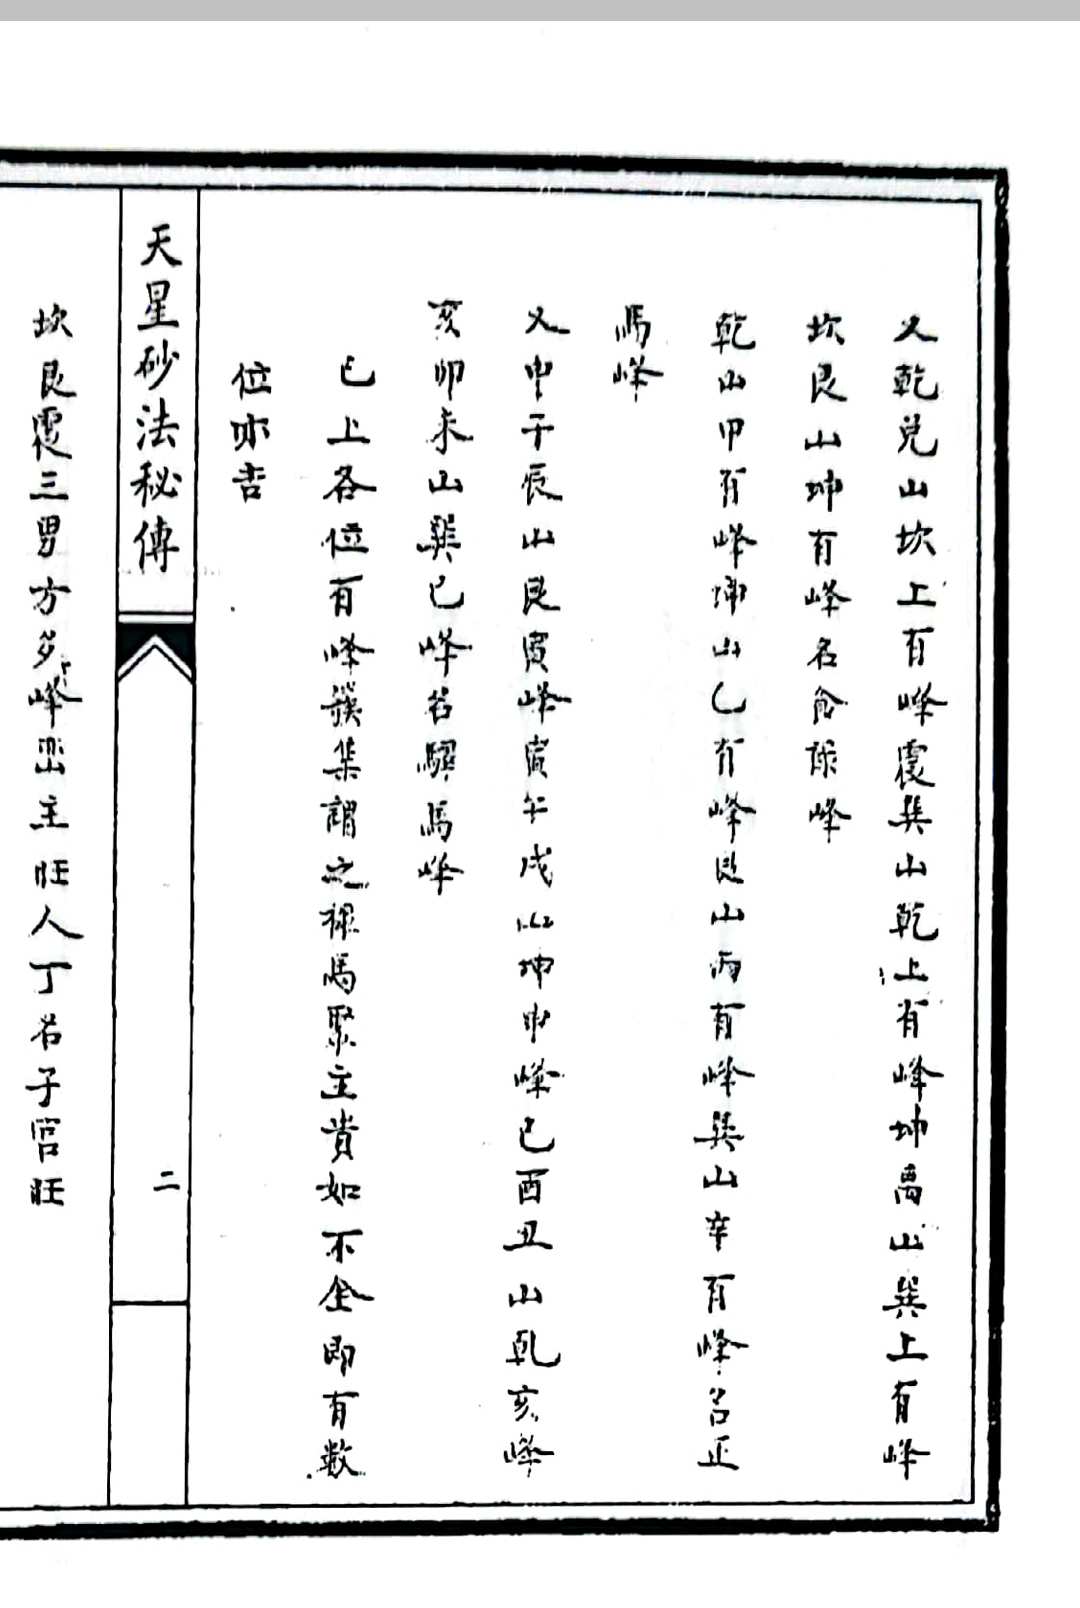 又乾兌山坎上有峰震巽山乾上有峰坤离山巽上有峰
坎艮山坤有峰名食祿峰
乾山甲有峰坤山乙有峰艮山丙有峰巽山辛有峰名正
馬峰
又申子辰山艮寅峰寅午戌山坤申峰巳酉丑山乾亥峰
亥卯未山巽巳峰名驛馬峰
已上各位有峰簇集謂之祿馬聚主貴如不全即有数
位亦吉
天星砂法秘傳
二
坎艮震三男方多峰巒主旺人丁名子宫旺